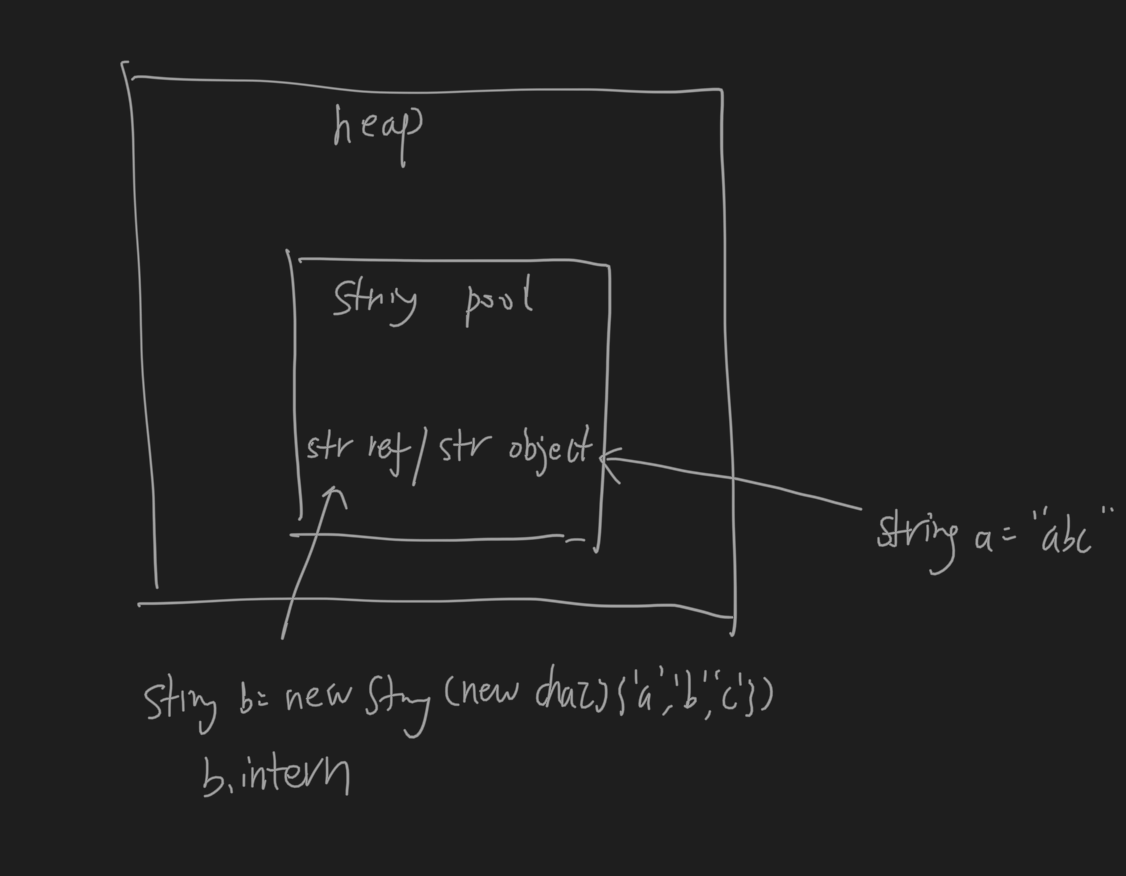 heap
string pool
str ref/str object
string a = "abc"
String b = new String (new char[]{'a','b','c'})
b.intern